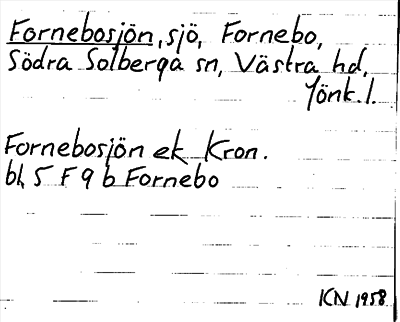 Fornebosjön, sjö, Fornebo,
Södra Solberga sn, Västra hd,
Jönk.l.
Fornebosjön ek Kron.
bl. 5 F 9 b Fornebo
KN 1958